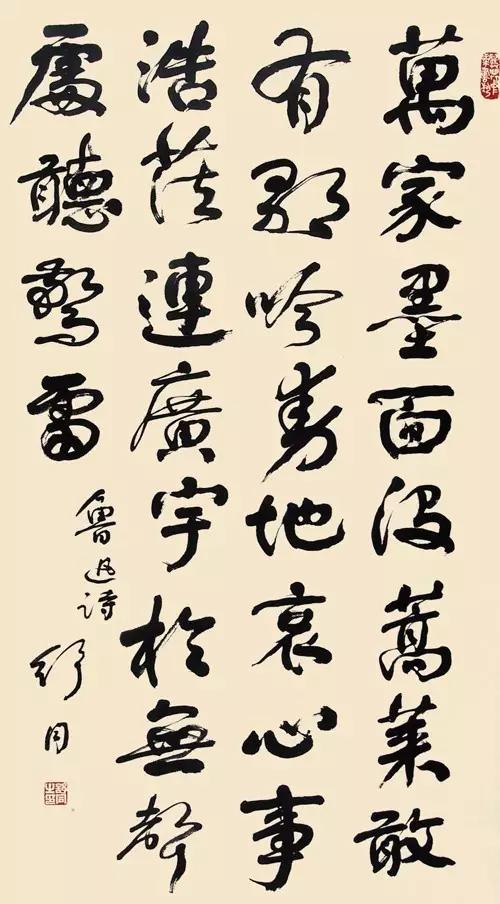 萬家墨面沒蒿萊敢
有歌吟動地哀心事
浩茫連廣宇於無聲
處聽驚雷
魯迅詩
舒同
舒同之印